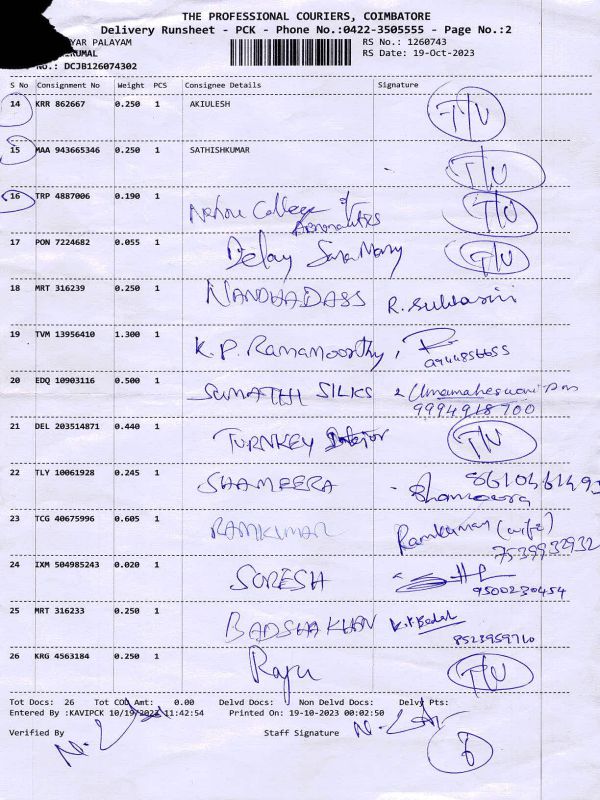 THE PROFESSIONAL COURIERS, COIMBATORE
Delivery Runsheet - PCK - Phone No.:0422-3505555 - Page No.:2
YAR PALAYAM
RS No.: 1260743
RUMAL
RS Date: 19-Oct-2023
No.: DCJB126074302
S No Consignment No Weight PCS Consignee Details Signature
14 KRR 862667 0.250 1 AKIULESH T/U
15 MAA 943665346 0.250 1 SATHISHKUMAR T/U
16 TRP 4887006 0.190 1 Nehru College of Aeronautics T/U
17 PON 7224682 0.055 1 Delay Sara Mary T/U
18 MRT 316239 0.250 1 NANDHADASS R. Subhasini
19 TVM 13956410 1.300 1 K.P. Ramamoorthy,
20 EDQ 10903116 0.500 1 SUMATHI SILKS Umamaheswari
9994918700
21 DEL 203514871 0.440 1 TURNKEY Interior T/U
22 TLY 10061928 0.245 1 SHAMEERA
23 TCG 40675996 0.605 1 RAMKUMAR Ramkumar (wife)
7539932932
24 IXM 504985243 0.020 1 SURESH
9500230454
25 MRT 316233 0.250 1 BADSHA KHAN
26 KRG 4563184 0.250 1 Raju T/U
Tot Docs: 26 Tot COD Amt: 0.00 Delvd Docs: Non Delvd Docs: Delvy Pts:
Entered By :KAVIPCK 10/19/2023 11:42:54 Printed On: 19-10-2023 00:02:50
Verified By Staff Signature
6